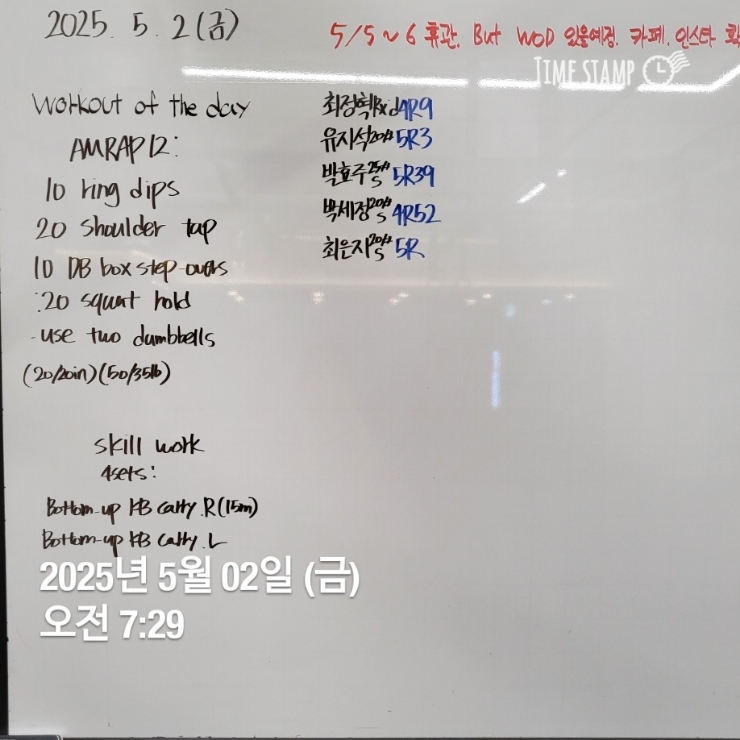 2025. 5. 2(금)
5/5~6 휴관. But WOD 있을예정. 카페, 인스타
TIME STAMP
Workout of the day
AMRAP 12:
10 ring dips
20 shoulder tap
10 DB box step-overs
:20 squat hold
-use two dumbbells
(20/20in)(50/35lb)
최정혁 Rx'd 4R9
유지석 20# 5R3
박효주 25# S 5R39
박세정 20# S 4R52
최은지 20# S 5R
skill work
4sets:
Bottom-up KB carry.R(15m)
Bottom-up KB carry.L
2025년 5월 02일 (금)
오전 7:29